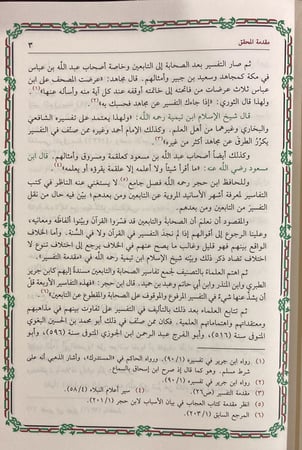 مقدمة المحقق
٣
ثم صار التفسير بعد الصحابة إلى التابعين وخاصة أصحاب عبد الله بن عباس
في مكة كمجاهد وسعيد بن جبير وأمثالهم. قال مجاهد: «عرضت المصحف على ابن
عباس ثلاث عرضات من فاتحته إلى خاتمته أوقفه عند كل آية منه وأسأله عنها»(١).
ولهذا قال الثوري: «إذا جاءك التفسير عن مجاهد فحسبك به»(٢).
قال شيخ الإسلام ابن تيمية رحمه الله: «ولهذا يعتمد على تفسيره الشافعي
والبخاري وغيرهما من أهل العلم. وكذلك الإمام أحمد وغيره ممن صنف في التفسير
يكرّر الطرق عن مجاهد أكثر من غيره»(٣).
وكذلك أيضاً أصحاب عبد الله بن مسعود كعلقمة ومسروق وأمثالهم. قال ابن
مسعود رضي الله عنه: «ما أقرأ شيئاً ولا أعلمه إلا علقمة يقرؤه أو يعلمه»(٤).
وللحافظ ابن حجر رحمه الله فصل جامع(٥) لا يستغني عنه الناظر في كتب
التفاسير لمعرفة أشهر الأسانيد المروية عن التابعين ومن بعدهم، بيّن فيه حال من نقل
التفسير من التابعين ومن بعدهم.
والمقصود أن نعلم أن الصحابة والتابعين قد فسّروا القرآن وبيّنوا ألفاظه ومعانيه،
وعلينا الرجوع إلى أقوالهم إذا لم نجد التفسير في القرآن ولا في السنة. وأما الخلاف
الواقع بينهم فهو قليل وغالب ما يصح عنهم في الخلاف يرجع إلى اختلاف تنوع لا
اختلاف تضاد ذكر ذلك وبيّنه شيخ الإسلام ابن تيمية رحمه الله في «مقدمة التفسير».
ثم اهتم العلماء بالتصنيف فجمع تفاسير الصحابة والتابعين مسندة إليهم كابن جرير
الطبري وابن المنذر وابن أبي حاتم وعبد بن حميد. قال ابن حجر: «فهذه التفاسير الأربعة قلّ
أن يشذّ عنها شيء في التفسير المرفوع والموقوف على الصحابة والمقطوع عن التابعين»(٦).
ثم تتابع العلماء بعد ذلك بالتأليف في التفسير على تفاوت بينهم في مذاهبهم
ومعتقداتهم واهتماماتهم العلمية. فكان ممن صنف في ذلك أبو محمد بن الحسين البغوي
المتوفى سنة (٥١٦)، وأبو الفرج عبد الرحمن ابن الجوزي المتوفى سنة (٥٩٦)، وأبو
(١) رواه ابن جرير في تفسيره (٩٠/١). ورواه الحاكم في «المستدرك»، وأشار الذهبي أنه على
شرط مسلم. وهو كما قال إذ صرح ابن إسحاق بالسماع.
(٢) رواه ابن جرير في تفسيره (٩١/١).
(٣) مقدمة التفسير (ص٢٦). (٤) سير أعلام النبلاء (٥٨/٤).
(٥) انظر مقدمة كتاب العجاب في بيان الأسباب لابن حجر (٢٠١/١).
(٦) المرجع السابق (٢٠٣/١).